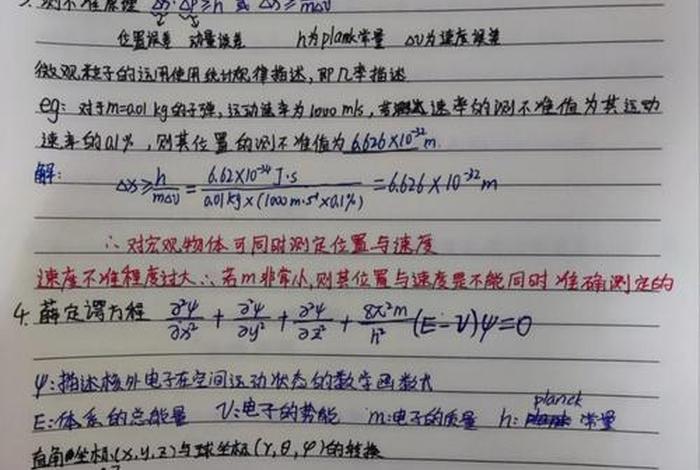 3. 测不准原理 Δx·Δp≥h 或 Δx≥h/mΔυ
位置误差 动量误差 h为plank常量 Δυ为速度误差
微观粒子的运用使用统计规律描述,即几率描述
eg: 对于m=0.01 kg的子弹,运动速率为1000 m/s,若 速率的测不准值为其运动
速率的0.1%,则其位置的测不准值为 6.626×10⁻³²m
解:
Δx≥h/mΔυ = 6.62×10⁻³⁴J·s/0.01kg×(1000m·s⁻¹×0.1%) = 6.626×10⁻³²m
∴ 对宏观物体可同时测定位置与速度
速度不准程度过大∴若m非常小,则其位置与速度是不能同时准确测定的
4. 薛定谔方程 ∂²ψ/∂x² + ∂²ψ/∂y² + ∂²ψ/∂z² + 8π²m/h² (E-V)ψ=0
ψ:描述核外电子在空间运动状态的数学函数式
E:体系的总能量 V:电子的势能 m:电子的质量 h: planck 常量
直角坐标(x,y,z)与球坐标(r,θ,φ)的转换